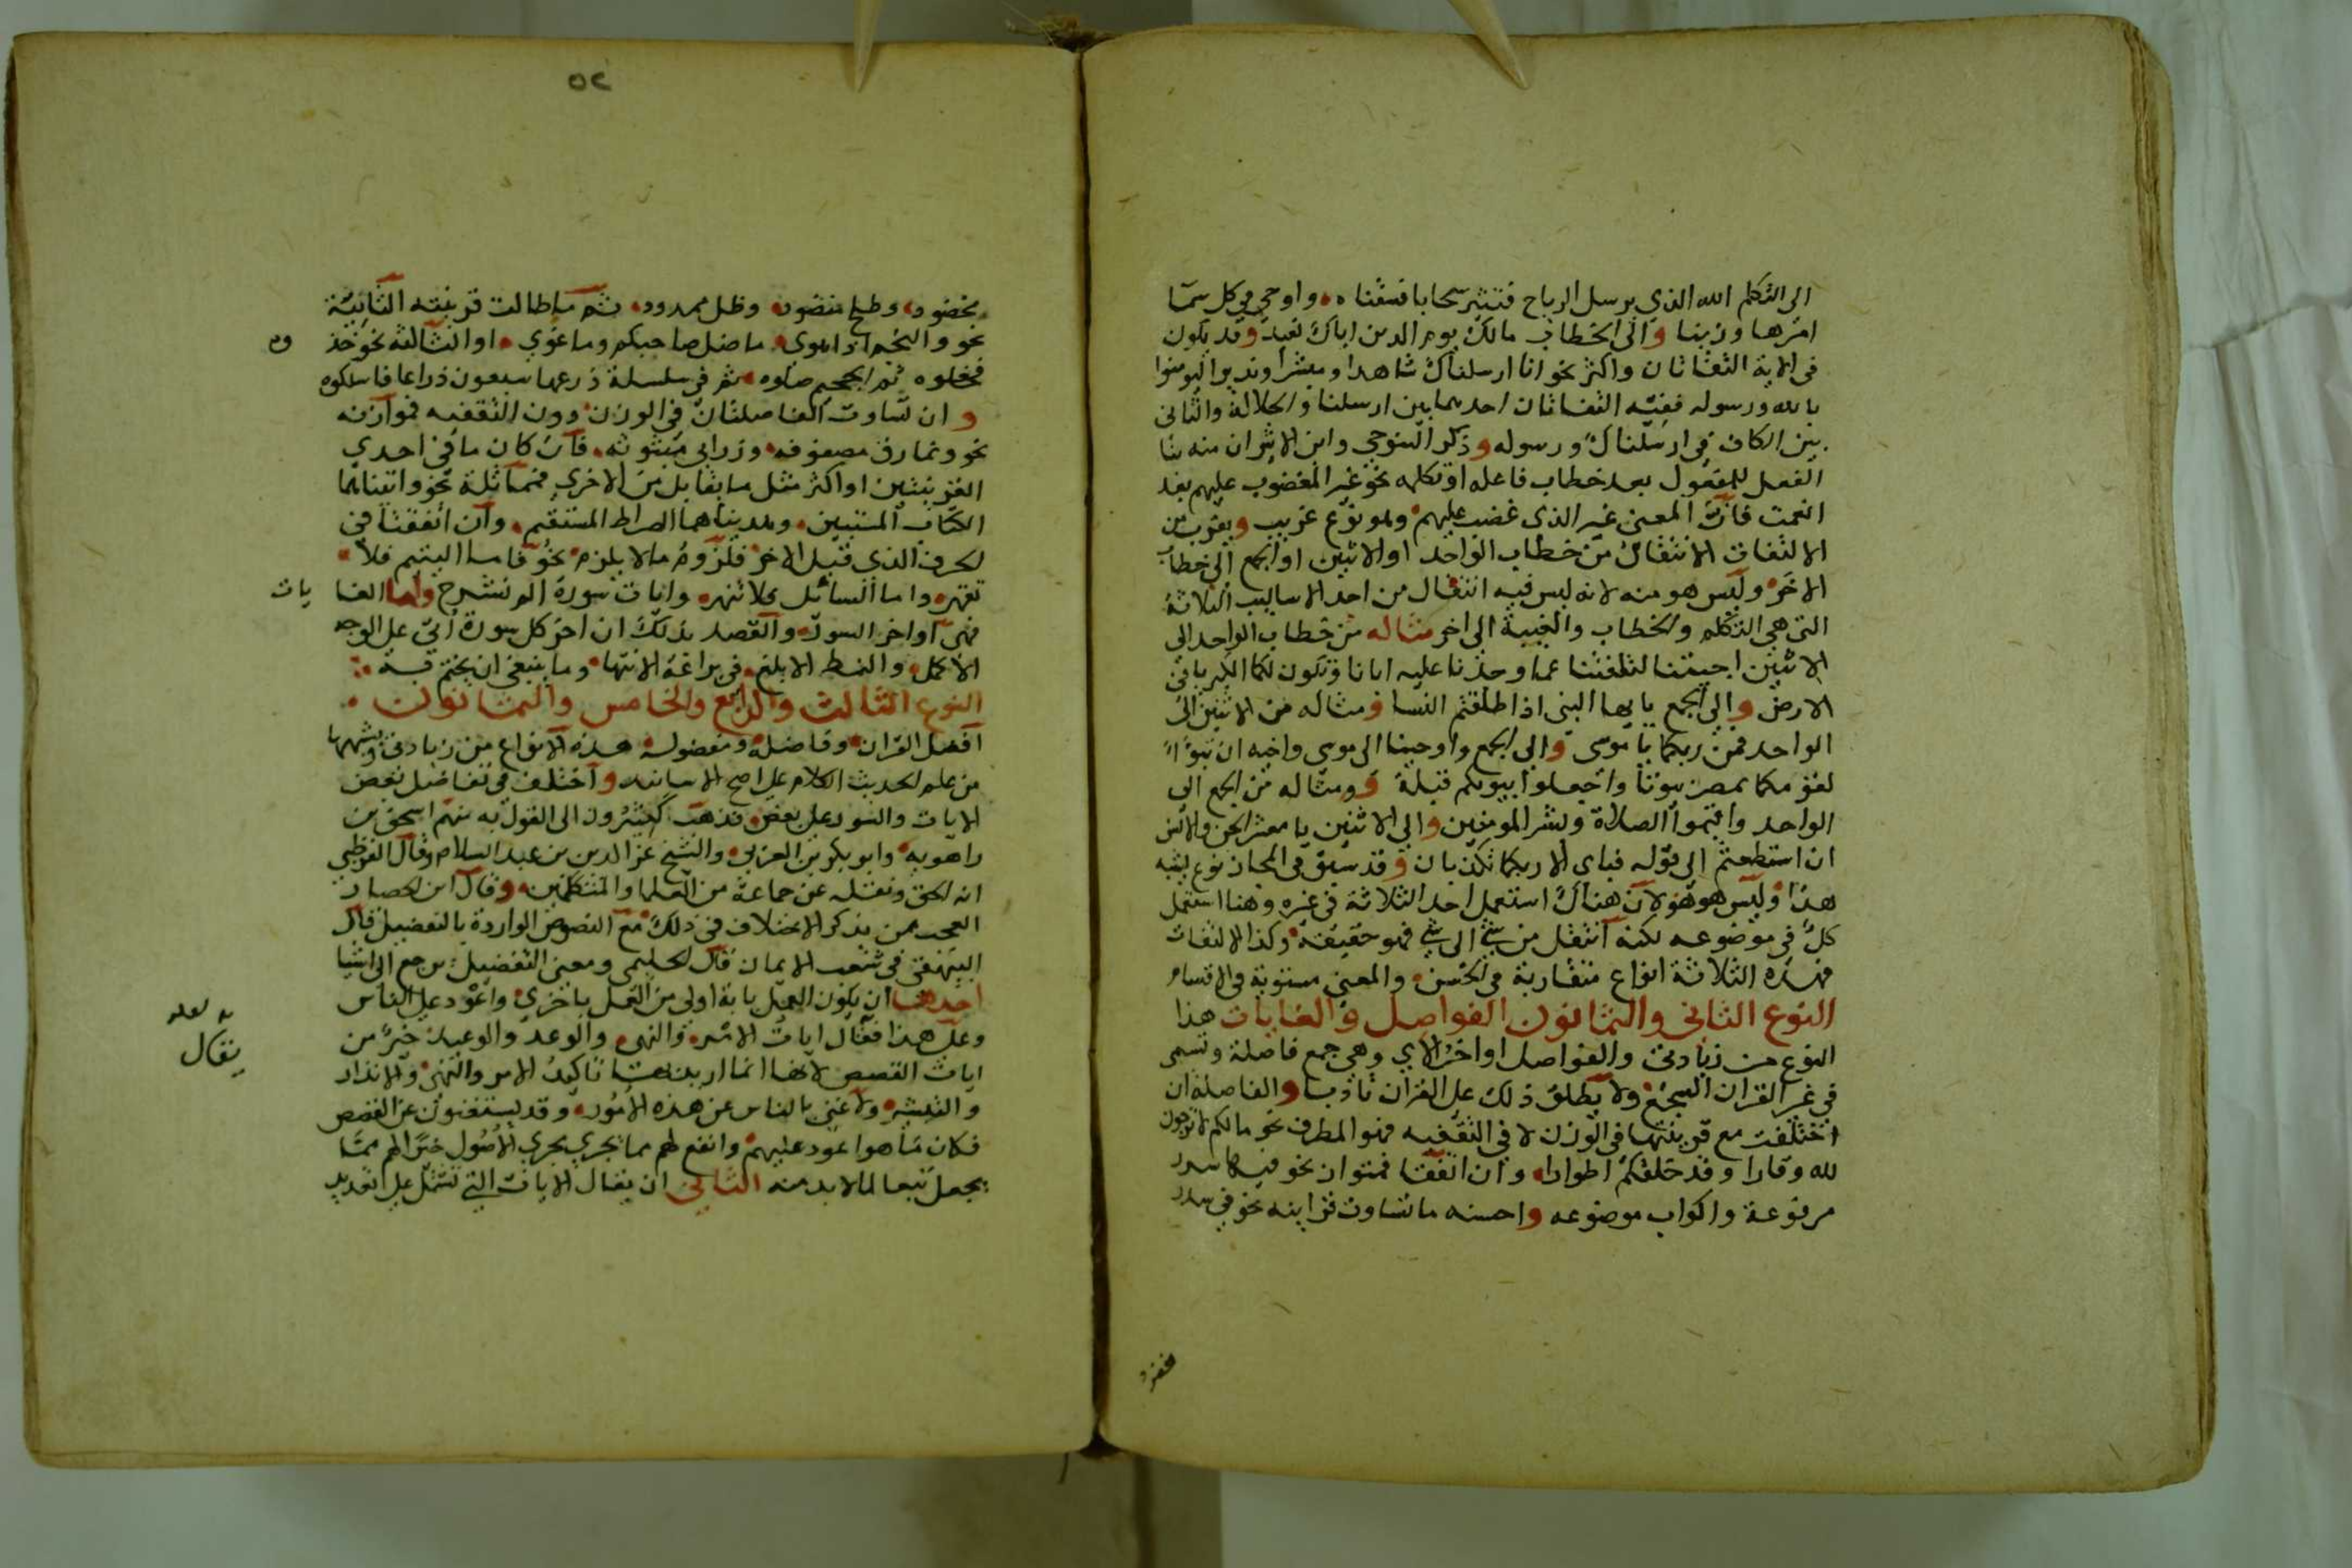 الى التكلم الله الذي يرسل الرياح فتثير سحابا فسقناه واوحى في كل سما
امرها وزينا والى الخطاب مالك يوم الدين اياك نعبد وقد يكون
في الاية التفاتان واكثر نحو انا ارسلناك شاهدا ومبشرا ونذيرا ليومنوا
بالله ورسوله ففيه التفاتان احدهما بين ارسلنا والجلالة والثاني
بين الكاف في ارسلناك ورسوله وذكر التنوخي وابن الاثير ان منه بنا
الفعل للمفعول بعد خطاب فاعله او تكلمه نحو غير المغضوب عليهم بعد
انعمت فان المعنى غير الذي غضبت عليهم وهو نوع غريب ويقرب من
الالتفات الانتقال من خطاب الواحد او الاثنين او الجمع الى خطاب
الاخر وليس هو منه لانه ليس فيه انتقال من احد الاساليب الثلاثة
التي هي التكلم والخطاب والغيبة الى اخر مثاله من خطاب الواحد الى
الاثنين اجيتنا لتلفتنا عما وجدنا عليه ابانا وتكون لكما الكبريا في
الارض والى الجمع يايها النبي اذا طلقتم النسا ومثاله من الاثنين الى
الواحد فمن ربكما يا موسى والى الجمع واوحينا الى موسى واخيه ان تبوءا
لقومكما بمصر بيوتا واجعلوا بيوتكم قبلة ومثاله من الجمع الى
الواحد واقيموا الصلاة وبشر المومنين والى الاثنين يا معشر الجن والانس
ان استطعتم الى قوله فباى الا ربكما تكذبان وقد سبق في المجاز نوع يشبه
هذا وليس هو هو لان هناك استعمل احد الثلاثة في غيره وهنا استعمل
كل في موضوعه لكنه انتقل من شي الى شي فهو حقيقة وكذا الالتفات
فهذه الثلاثة انواع متقاربة في الحسن والمعنى مستوية في الاقسام
النوع الثاني والثمانون الفواصل والغايات هذا
النوع من زيادتي والفواصل اواخر الآي وهي جمع فاصلة وتسمى
في غير القران السجع ولا يطلق ذلك على القران تادبا والفاصلة ان
اختلفت مع قرينتها في الوزن لا في التقفيه فهو المطرف نحو مالكم لا ترجون
لله وقارا وقد خلقكم اطوارا وان اتفقتا فمتوازن نحو فيها سرر
مرفوعة واكواب موضوعه واحسنه ما تساوت قراينه نحو في سدر
مخضود وطلح منضود وظل ممدود ثم ما طالت قرينته الثانية
نحو والنجم اذا هوى ما ضل صاحبكم وما غوى او الثالثة نحو خذ
وه
فغلوه ثم الجحيم صلوه ثم في سلسلة ذرعها سبعون ذراعا فاسلكوه
وان تساوت الفاصلتان في الوزن دون التقفيه فموازنه
نحو ونمارق مصفوفه وزرابي مبثوثه فان كان ما في احدي
القرينتين او اكثر مثل ما يقابل من الاخرى فمماثلة نحو واتيناهما
الكتاب المستبين وهديناهما الصراط المستقيم وان اتفقتا في
الحرف الذي قبل الاخر فلزوم مالا يلزم نحو فاما اليتيم فلا
تقهر واما السائل فلا تنهر وايات سورة الم نشرح واما الغا
يات
فهي اواخر السور والقصد بذلك ان اخر كل سورة اتى على الوجه
الاكمل والنمط الابلغ في براعة الانتها وما ينبغي ان يختم به
النوع الثالث والرابع والخامس والثمانون
افضل القران وفاضله ومفضوله هذه الانواع من زيادتي ويشبهها
من علم الحديث الكلام على اصح الاسانيد واختلف في تفاضل بعض
الايات والسور على بعض فذهب كثيرون الى القول به منهم اسحق بن
راهويه وابو بكر بن العربي والشيخ عز الدين بن عبد السلام وقال القرطبي
انه الحق ونقله عن جماعة من العلما والمتكلمين وقال ابن الحصار
العجب ممن يذكر الاختلاف في ذلك مع النصوص الواردة بالتفضيل قال
البيهقي في شعب الايمان قال الحليمي ومعنى التفضيل يرجع الى اشيا
احدها ان يكون العمل باية اولى من العمل باخرى واعود على الناس
وعلى هذا فقال ايات الامر والنهي والوعد والوعيد خير من
به لعله
يقال
ايات القصص لانها انما اريد بها تاكيد الامر والنهي والانذار
والتبشير ولا غنى بالناس عن هذه الامور وقد يستغنون عن القصص
فكان ما هو اعود عليهم وانفع لهم مما يجري مجرى الاصول خيرا لهم مما
يجعل تبعا لما لابد منه الثاني ان يقال الايات التي تشتمل على تعديد
٥٢